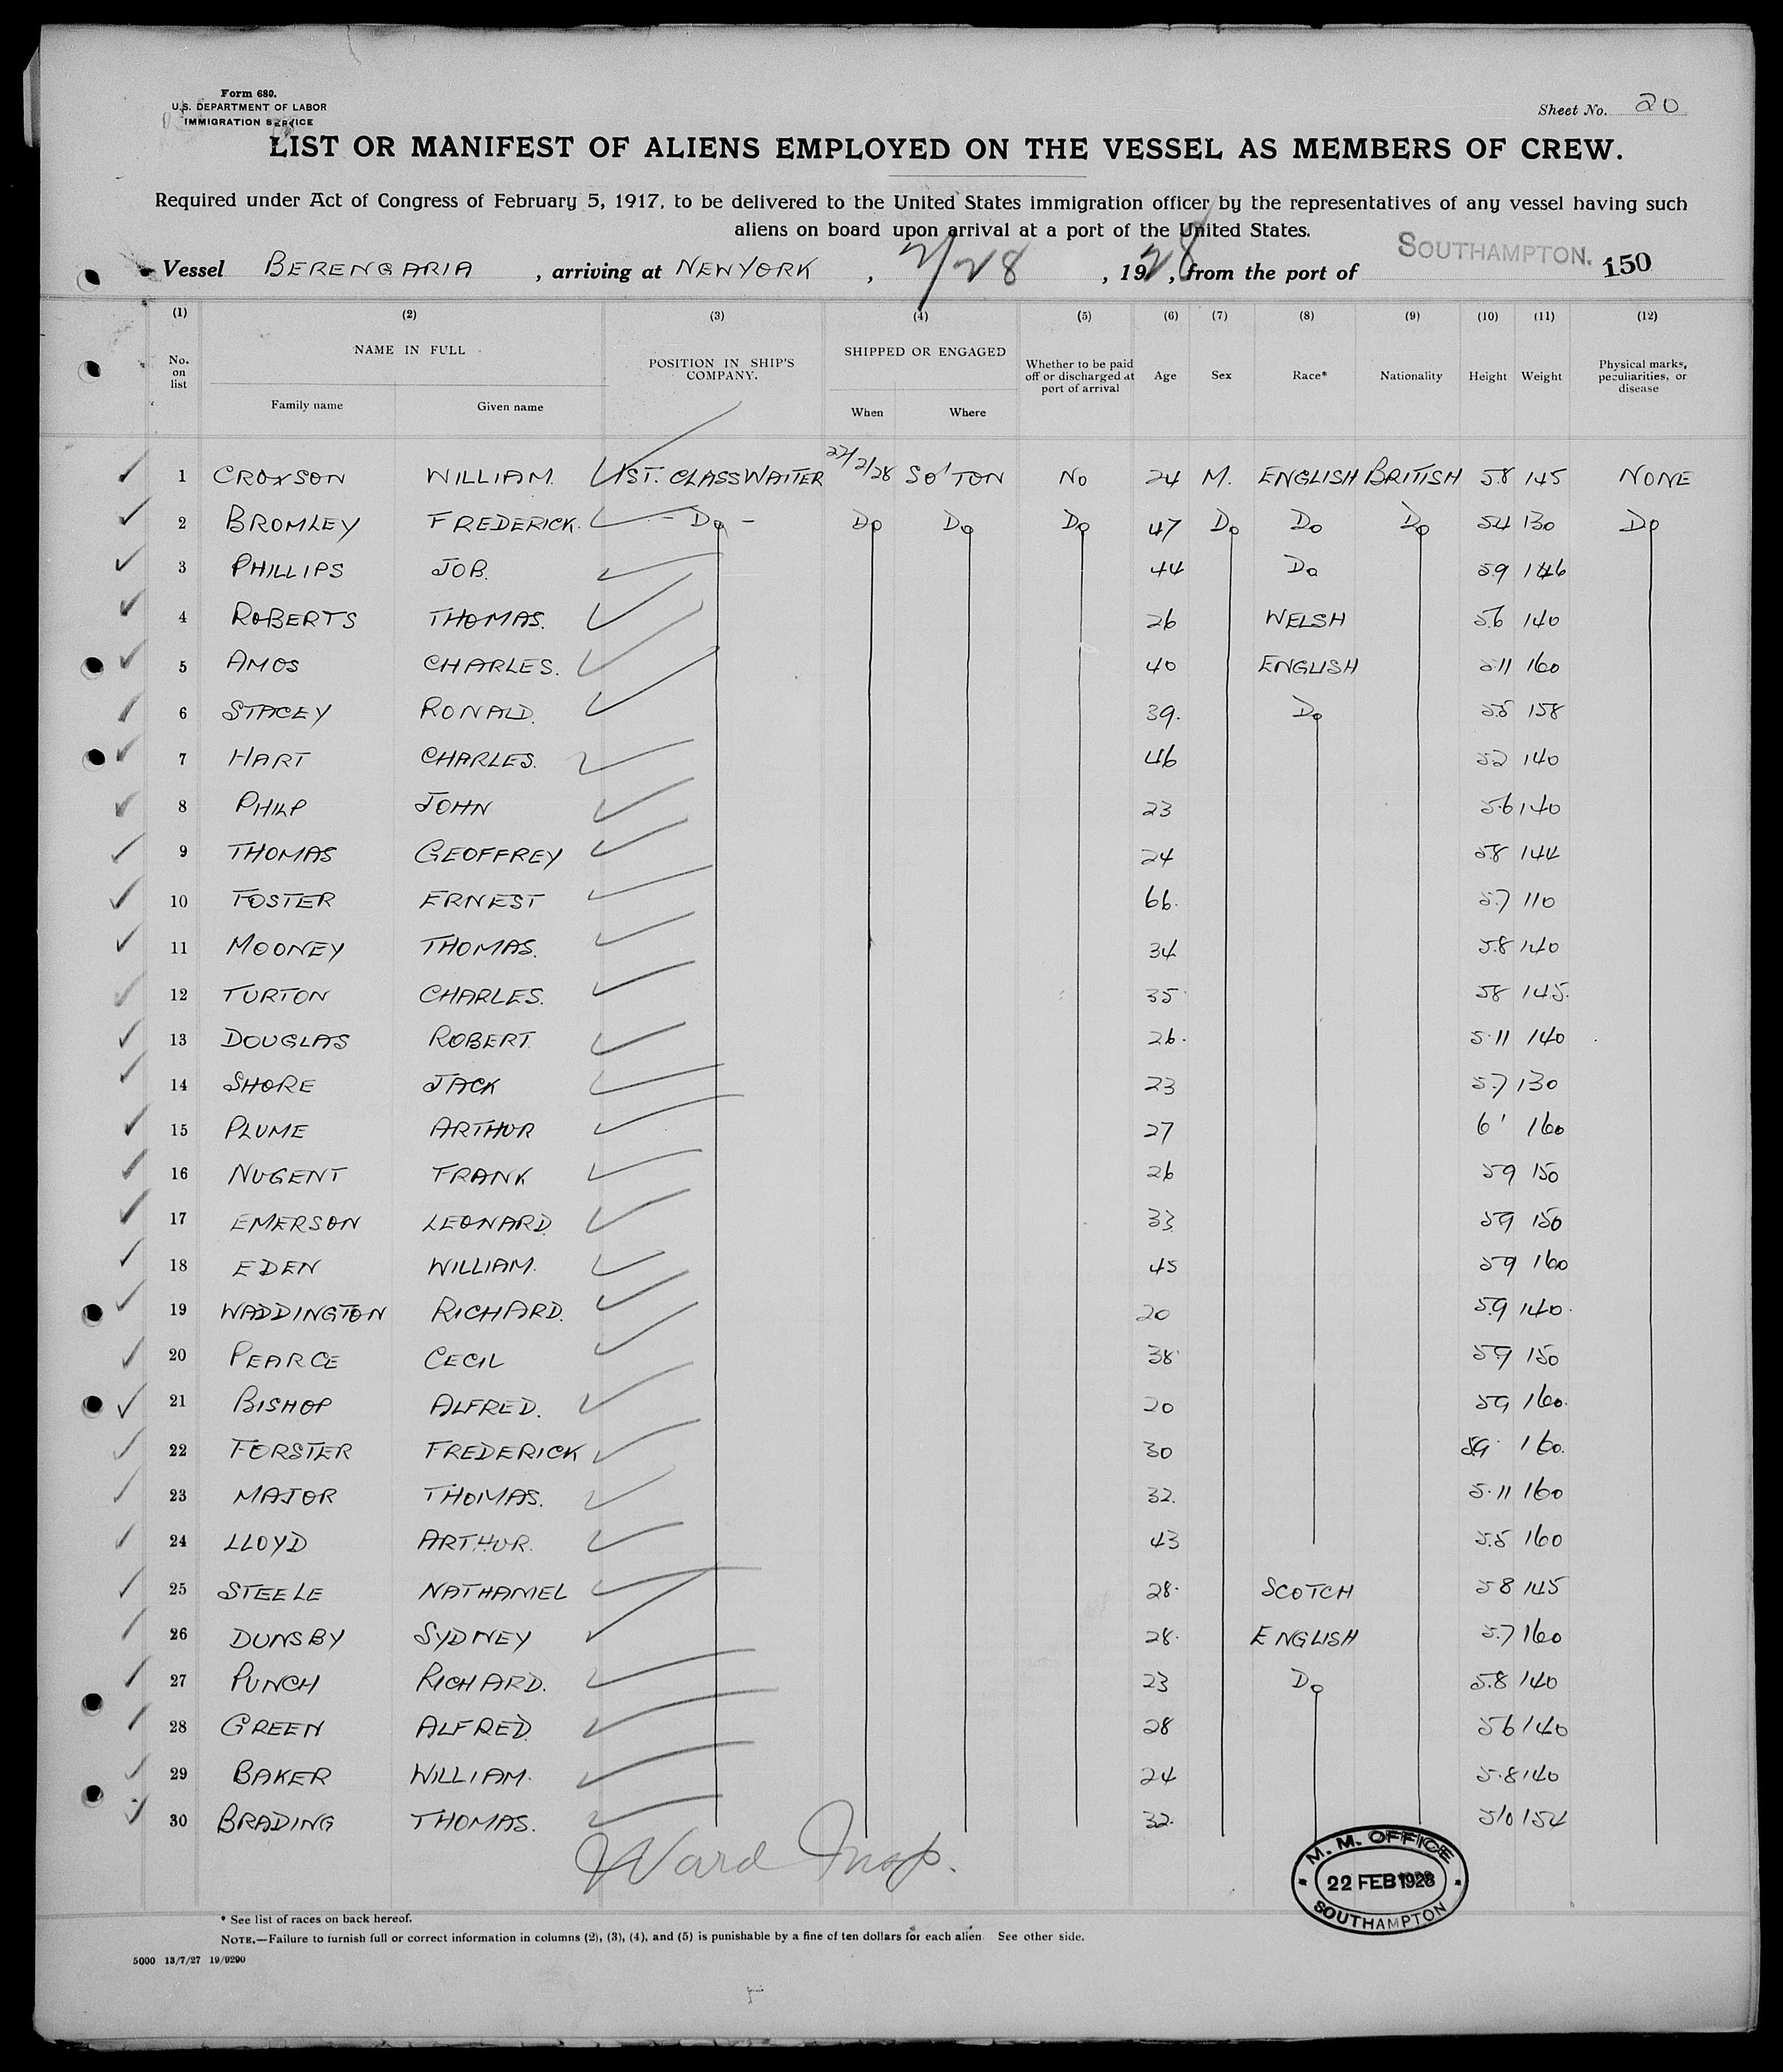 Form 680.
U.S. DEPARTMENT OF LABOR
IMMIGRATION SERVICE
Sheet No. 20
LIST OR MANIFEST OF ALIENS EMPLOYED ON THE VESSEL AS MEMBERS OF CREW.
Required under Act of Congress of February 5, 1917, to be delivered to the United States immigration officer by the representatives of any vessel having such
aliens on board upon arrival at a port of the United States.
Vessel BERENGARIA, arriving at NEW YORK, 2/28, 1928, from the port of SOUTHAMPTON. 150
(1) (2) (3) (4) (5) (6) (7) (8) (9) (10) (11) (12)
No. on list NAME IN FULL Family name Given name POSITION IN SHIP'S COMPANY. SHIPPED OR ENGAGED When Where Whether to be paid off or discharged at port of arrival Age Sex Race* Nationality Height Weight Physical marks, peculiarities, or disease
1 CROXSON WILLIAM. 1ST. CLASS WAITER 22/2/28 SO'TON No 24 M. ENGLISH BRITISH 5.8 145 NONE
2 BROMLEY FREDERICK. - Do - Do Do Do 47 Do Do Do 54 130 Do
3 PHILLIPS JOB. 44 Do 5.9 146
4 ROBERTS THOMAS. 26 WELSH 5.6 140
5 AMOS CHARLES. 40 ENGLISH 5.11 160
6 STACEY RONALD. 39. Do 5.8 158
7 HART CHARLES. 46 52 140
8 PHILP JOHN 23 5.6 140
9 THOMAS GEOFFREY 24 5.8 144
10 FOSTER ERNEST 66. 5.7 110
11 MOONEY THOMAS. 34 5.8 140
12 TURTON CHARLES. 35 58 145.
13 DOUGLAS ROBERT. 26. 5.11 140
14 SHORE JACK 23 5.7 130
15 PLUME ARTHUR 27 6' 160
16 NUGENT FRANK 26 59 150
17 EMERSON LEONARD. 33 59 150
18 EDEN WILLIAM. 45 59 160
19 WADDINGTON RICHARD. 20 5.9 140.
20 PEARCE CECIL 38 59 150
21 BISHOP ALFRED. 20 59 160.
22 FORSTER FREDERICK 30 59 160.
23 MAJOR THOMAS. 32. 5.11 160
24 LLOYD ARTHUR. 43 5.5 160
25 STEELE NATHANIEL 28. SCOTCH 58 145
26 DUNSBY SYDNEY 28. ENGLISH 5.7 160
27 PUNCH RICHARD. 23 Do 5.8 140
28 GREEN ALFRED. 28 56 140
29 BAKER WILLIAM. 24 5.8 140
30 BRADING THOMAS. 32. 5/0 154
Ward Insp.
M. M. OFFICE
22 FEB 1928
SOUTHAMPTON
* See list of races on back hereof.
NOTE.—Failure to furnish full or correct information in columns (2), (3), (4), and (5) is punishable by a fine of ten dollars for each alien. See other side.
5000 13/7/27 19/9290